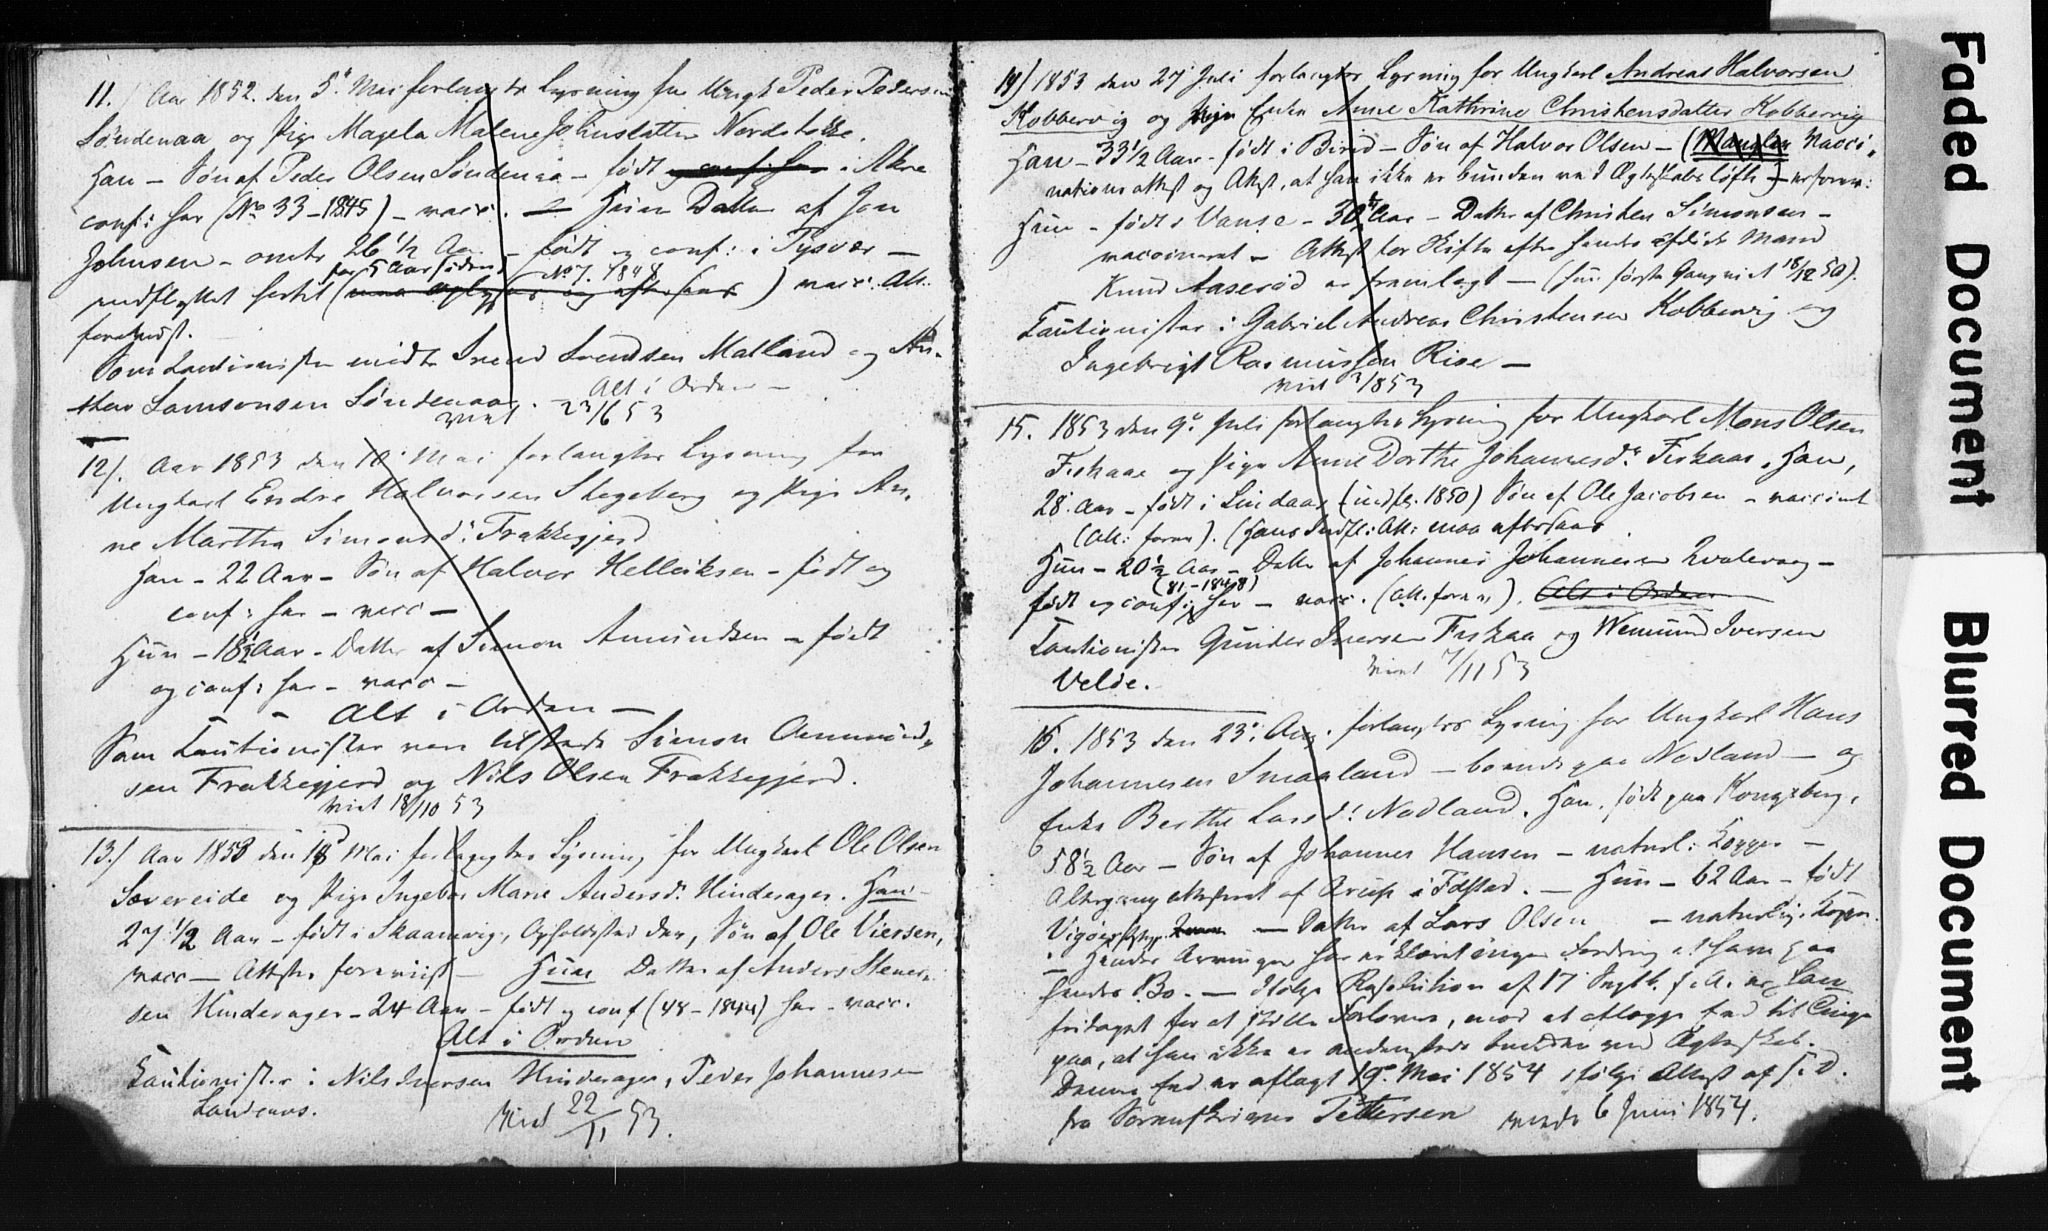 11.) Aar 1852. den 5t Mai forlangtes Lysning for Ungk. Peder Pedersen
Søndenaa og Pige Magela Malene Johnsdatter Nordstokke.
Han – Søn af Peder Olsen Søndenaa – født i Akre
conf: her (No 33 – 1845) – vacc. – Hun Datter af Jon
Johnsen – omtr. 26 1/2 Aar – født og conf: i Tysvær –
for 5 Aar siden No 7. 1848
indflyttet hertil ( ) vacc. Att.
forevist.
Som Cautionister mødte Svend Svendsen Matland og An-
ders Samsonsen Søndenaa. Alt i Orden –
viet 23/6 53
12). Aar 1853 den 10 Mai forlangtes Lysning for
Ungkarl Endre Halvorsen Stegeberg og Pige An-
ne Martha Simonsd: Frakkegjerd
Han – 22 Aar – Søn af Halvor Helleiksen – født og
conf: her – vacc –
Hun – 18 1/2 Aar – Datter af Simon Amundsen – født
og conf: her – vacc –
– Alt i Orden –
Som Cautionister vare tilstede Simon Ammund-
sen Frakkegjerd og Nils Olsen Frakkegjerd.
viet 18/10 53
13.) Aar 1853 den 18 Mai forlangtes Lysning for Ungkarl Ole Olsen
Sævereide og Pige Ingebor Marie Andersd. Hinderager. Han –
27 1/2 Aar – født i Skaanevig, Opholdssted der, Søn af Ole Viersen,
vacc – Attester forevist – Hun Datter af Anders Stener-
sen Hinderager – 24 Aar – født og conf (48 – 1844) her – vacc.
Alt i Orden
Cautionister: Nils Iversen Hinderager, Peder Johannesen
Landenas.
Viet 22/11 53.
14) 1853 den 27 Juli forlangtes Lysning for Ungkarl Andreas Halvorsen
Kobbervig og Enke Anne Kathrine Christensdatter Kobbervig
Han – 33 1/2 Aar – født i Birid – Søn af Halvor Olsen – (Mangler Vacci-
nations attest og Attest, at han ikke er bunden ved Ægteskabsløfte – er forev:
Hun – født i Vanse – 30 Aar – Datter af Christen Simonsen –
vaccineret – Attest for Skifte efter hendes afdøde Mand
Knud Aaserød er fremlagt – (hun første Gang viet 18/12 50).
Cautionister: Gabriel Andreas Christensen Kobbervig og
Ingebrigt Rasmussen Risø –
viet /853
15. 1853 den 9 Juli forlangtes Lysning for Ungkarl Mons Olsen
Fiskaae og Pige Anne Dorthe Johannesdr Fiskaae. Han,
28 Aar – født i Lindaas (indfl. 1850) Søn af Ole Jacobsen – vaccinert
(Att: forev). (Hans Indfl: Att: maa eftersees
Hun – 20 1/2 Aar – Datter af Johannes Johannesen Qvalevaag –
(81 – 1848)
født og conf: her – vacc. (Att. forev). Alt i Orden
Cautionister Gunder Iversen Fiskaa og Wemund Iversen
Velde. viet 7/11 53
16. 1853 den 23: Aug. forlangtes Lysning for Ungkarl Hans
Johannesen Smaaland – boende paa Nodland – og
Enke Berthe Larsd: Nodland. Han, født paa Kongsberg,
58 1/2 Aar – Søn af Johannes Hansen – naturl: Kopper –
Altergang attesteret af Arup i Idsted. – Hun – 62 Aar – født
– Datter af Lars Olsen – naturlig: Kopper.
– Hendes Arvinger har erklæret ingen Fordring at have paa
hendes Bo. – Ifølge Resolution af 17 Septb. f. A. er Han
fritaget for at stille Forlovere, mod at aflægge Eed til Thinge
paa, at han ikke er andensteds bunden ved Ægteskab.
Denne Eed er aflagt 19 Mai 1854 ifølge Attest af s. D.
fra Sorenskriver Pettersen viede 6 Juni 1854.
Faded Document
Blurred Document